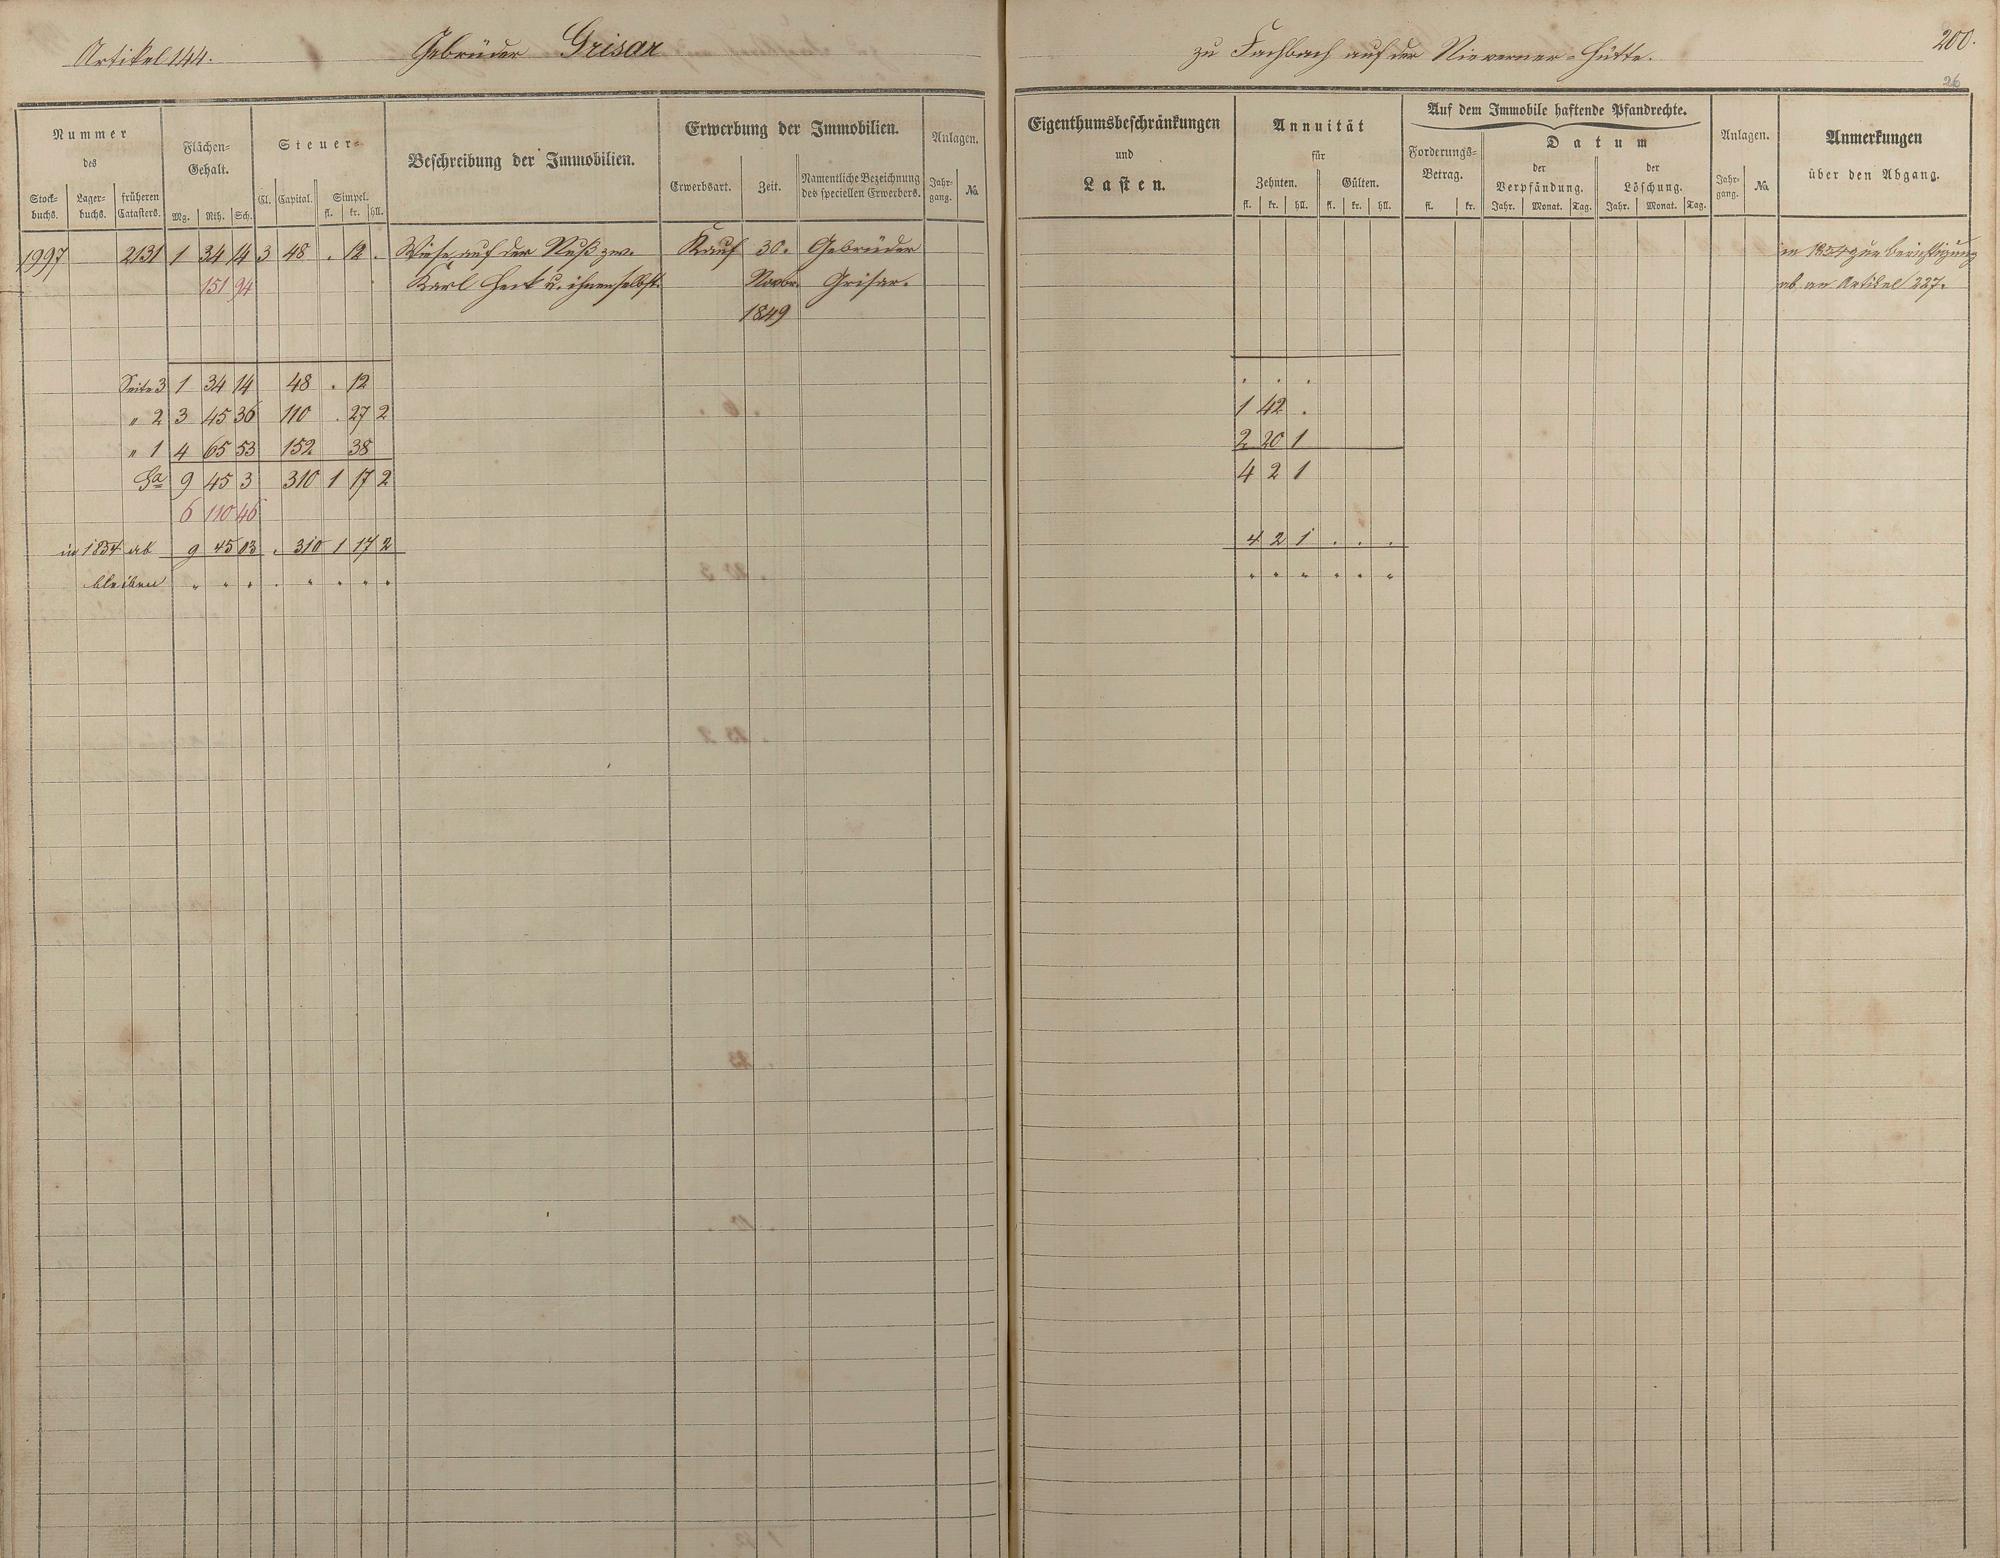 Artikel 144. Gebrüder Grisar zu Fachbach auf der Nieverner-Hütte. 200.
26
Nummer
des
Stock-
buchs.
Lager-
buchs.
früheren
Catasters.
Flächen-
Gehalt.
Mg. Rth. Sch.
Steuer-
Cl. Capital. Simpel.
fl. kr. hll.
Beschreibung der Immobilien.
Erwerbung der Immobilien.
Erwerbsart. Zeit. Namentliche Bezeichnung
des speciellen Erwerbers.
Anlagen.
Jahr-
gang.
No.
Eigenthumsbeschränkungen
und
Lasten.
Annuität
für
Zehnten. Gülten.
fl. kr. hll. fl. kr. hll.
Auf dem Immobile haftende Pfandrechte.
Forderungs-
Betrag.
fl. kr.
Datum
der
Verpfändung.
Jahr. Monat. Tag.
der
Löschung.
Jahr. Monat. Tag.
Anlagen.
Jahr-
gang.
No.
Anmerkungen
über den Abgang.
1997 2131 1 34 14 3 48 . 12 . Wiese auf der Nuß zw. Kauf 30. Gebrüder in 1854 zur Berichtigung
151 94 Karl Heck u. ihnen selbst. Novbr. Grisar. ab, an Artikel 227.
1849
Seite 3 1 34 14 48 . 12 . . .
" 2 3 45 36 110 . 27 2 1 42 .
" 1 4 65 53 152 38 2 20 1
Sa 9 45 3 310 1 17 2 4 2 1
6 110 46
in 1854 ab 9 45 03 . 310 1 17 2 4 2 1 . . .
bleiben " " " . " " " " " " " " " "